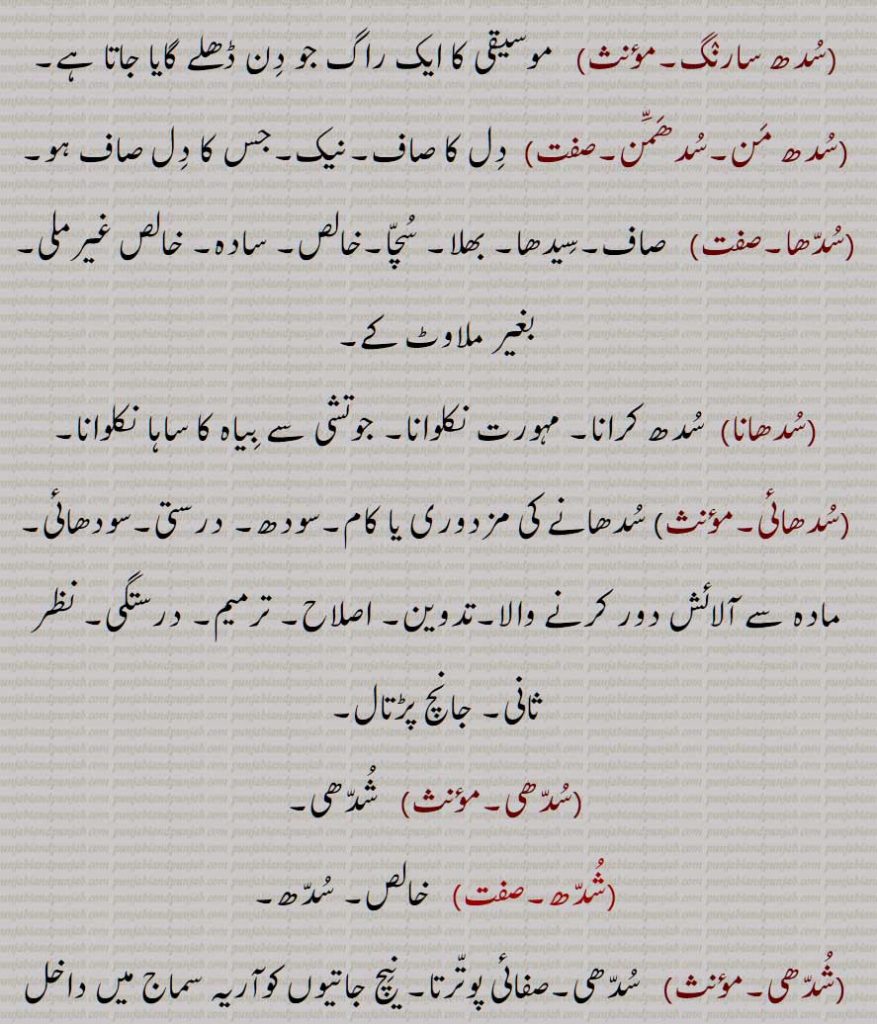 (سُدھ سارنگ۔مؤنث) موسیقی کا ایک راگ جو دِن ڈھلے گایا جاتا ہے۔
(سُدھ مَن۔سُدھَمِّن۔صفت) دِل کا صاف۔نیک۔جس کا دِل صاف ہو۔
(سُدّھا۔صفت) صاف۔سِیدھا۔ بھلا۔ سُچّا۔خالص۔ سادہ۔ خالص غیر ملی۔
بغیر ملاوٹ کے۔
(سُدھانا) سُدھ کرانا۔ مہورت نکلوانا۔ جوتشی سے بِیاہ کا ساہا نکلوانا۔
(سُدھائی۔مؤنث) سُدھانے کی مزدوری یا کام۔سودھ۔ درستی۔سودھائی۔
مادہ سے آلائش دور کرنے والا۔تدوین۔ اصلاح۔ ترمیم۔ درستگی۔ نظر
ثانی۔ جانچ پڑتال۔
(سُدّھی۔مؤنث) شُدّھی۔
(شُدّھ۔صفت) خالص۔ سُدّھ۔
(شُدّھی۔مؤنث) سُدّھی۔صفائی پوتّرتا۔ نِیچ جاتیوں کوآریہ سماج میں داخل
punjabiandpunjab.com